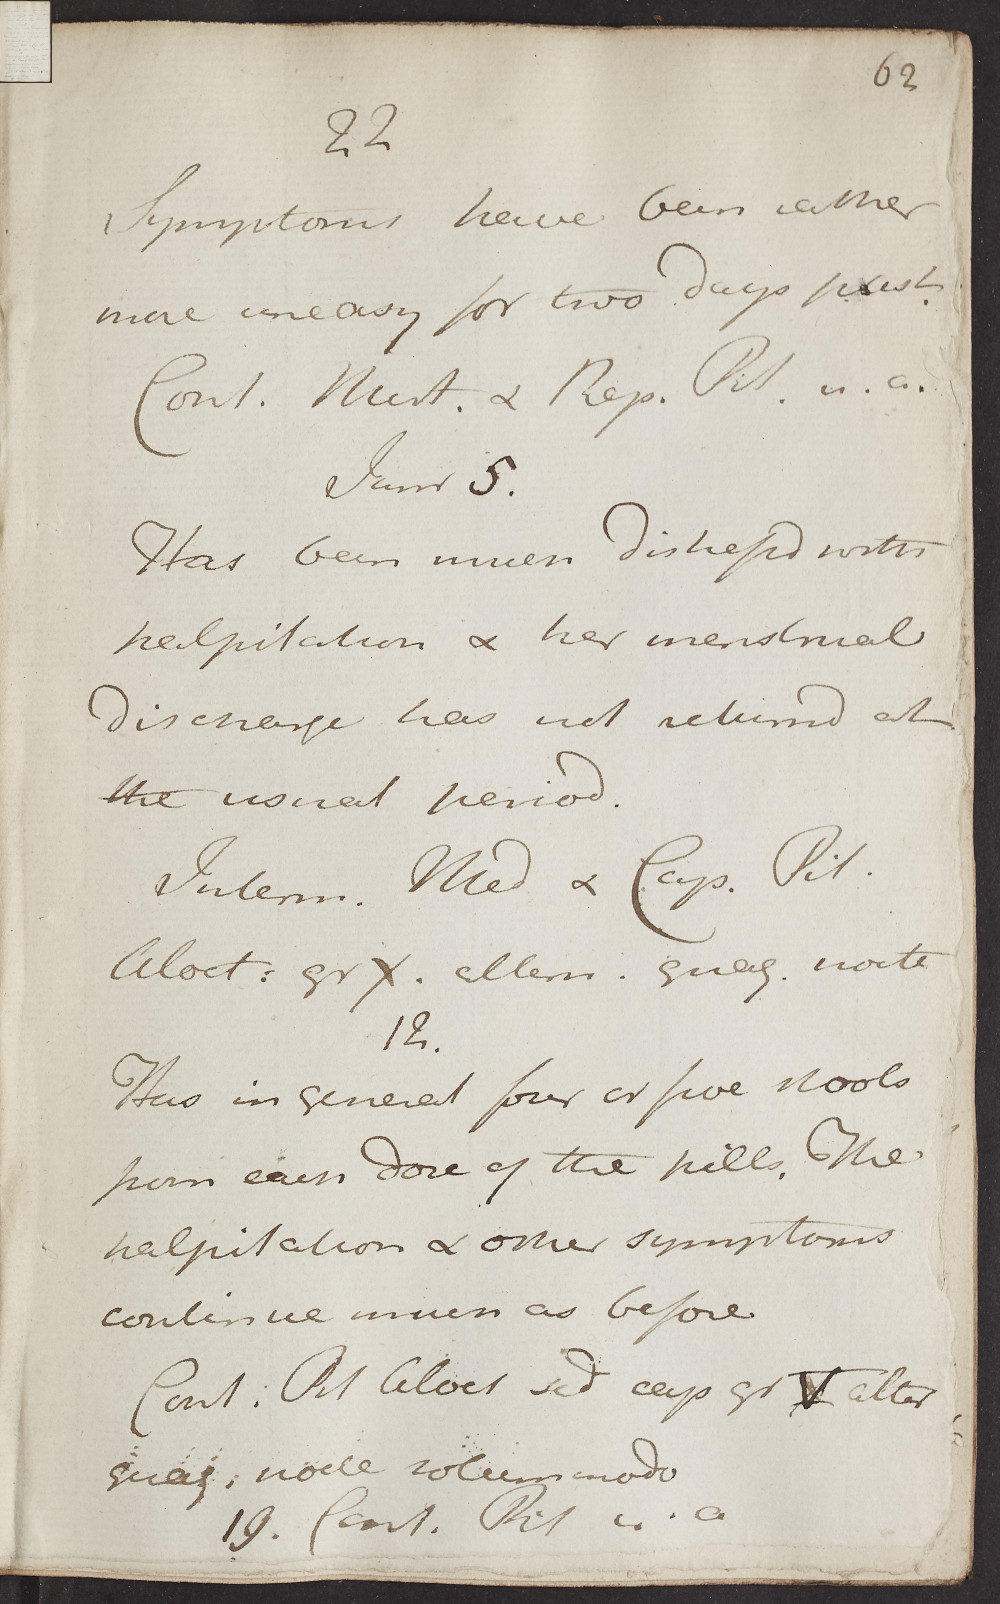 62
22
Symptoms have been rather
more uneasy for two days past.
Cont. Mist. & Rep. Pil. u. a.
Junr 5.
Has been much distressd with
palpitation & her menstrual
discharge has not returnd at
the usual period.
Interm. Med & Cap. Pil.
Aloet: gr X. altern. quaq. nocte
12.
Has in general four or five stools
from each dose of the pills. The
palpitation & other symptoms
continue much as before
Cont: Pil Aloet sed cap gr V alter
quaq. nocte solummodo
19. Cont. Pil u. a